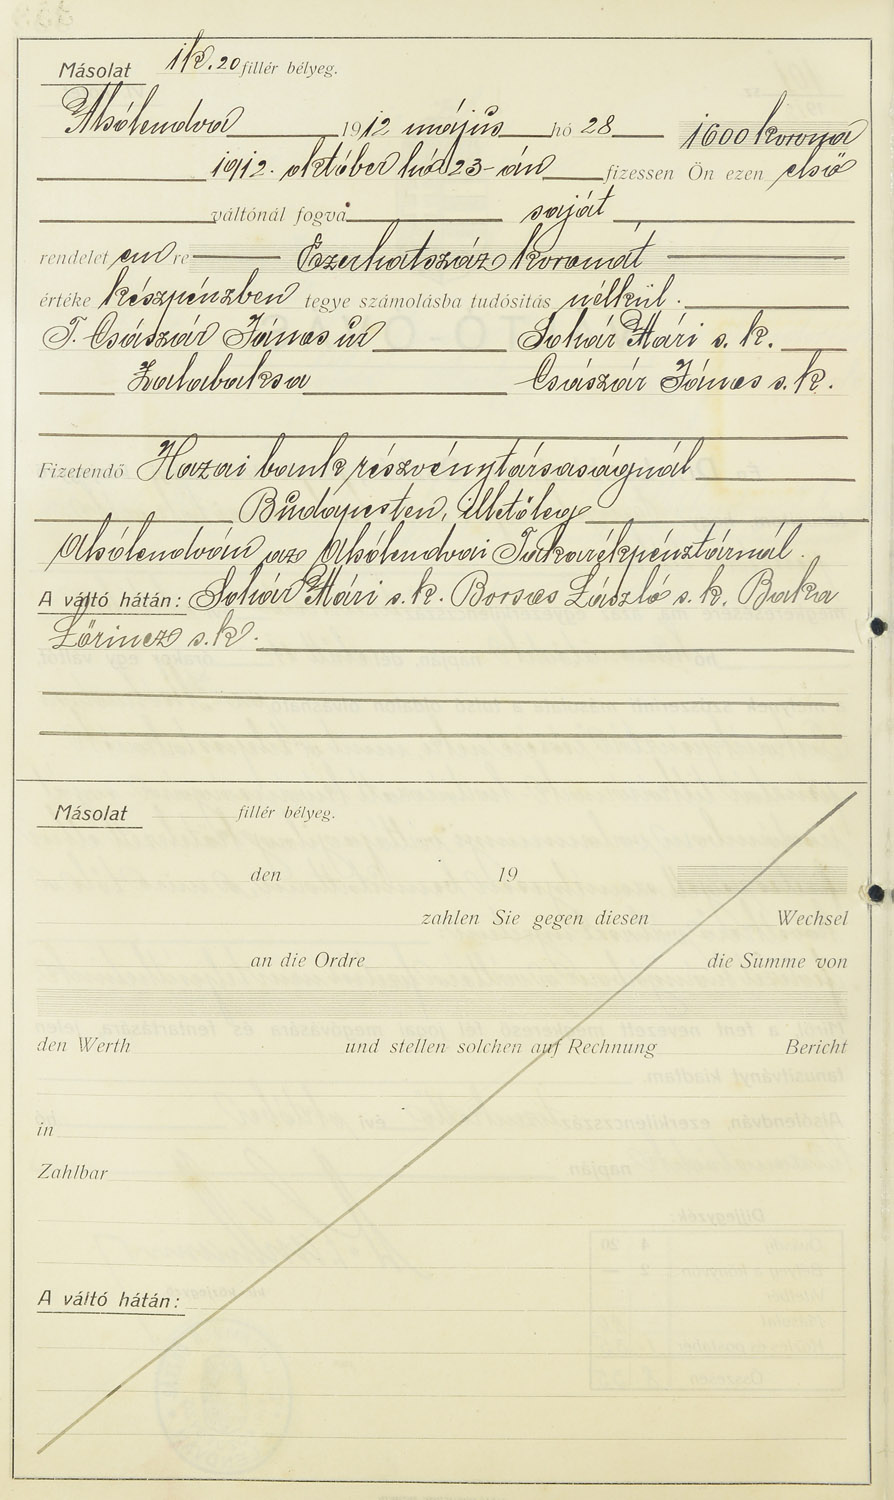 Másolat 1k. 20 fillér bélyeg.
Alsólendva 1912 május hó 28 1600 korona
1912. október hó 23-án fizessen Ön ezen első
váltónál fogva saját
rendelet em re Ezerhatszáz koronát
értéke készpénzben tegye számolásba tudósítás nélkül.
T. Császár János úr Sohár Mári s. k.
Zalabaksa Császár János s. k.
Fizetendő Hazai bank részvénytársaságnál
Budapesten, illetőleg
Alsólendván az Alsólendvai Takarékpénztárnál.
A váltó hátán: Sohár Mári s. k. Borsos László s. k. Baka
Lőrincz s. k.
Másolat fillér bélyeg.
den 19
zahlen Sie gegen diesen Wechsel
an die Ordre die Summe von
den Werth und stellen solchen auf Rechnung Bericht
in
Zahlbar
A váltó hátán: